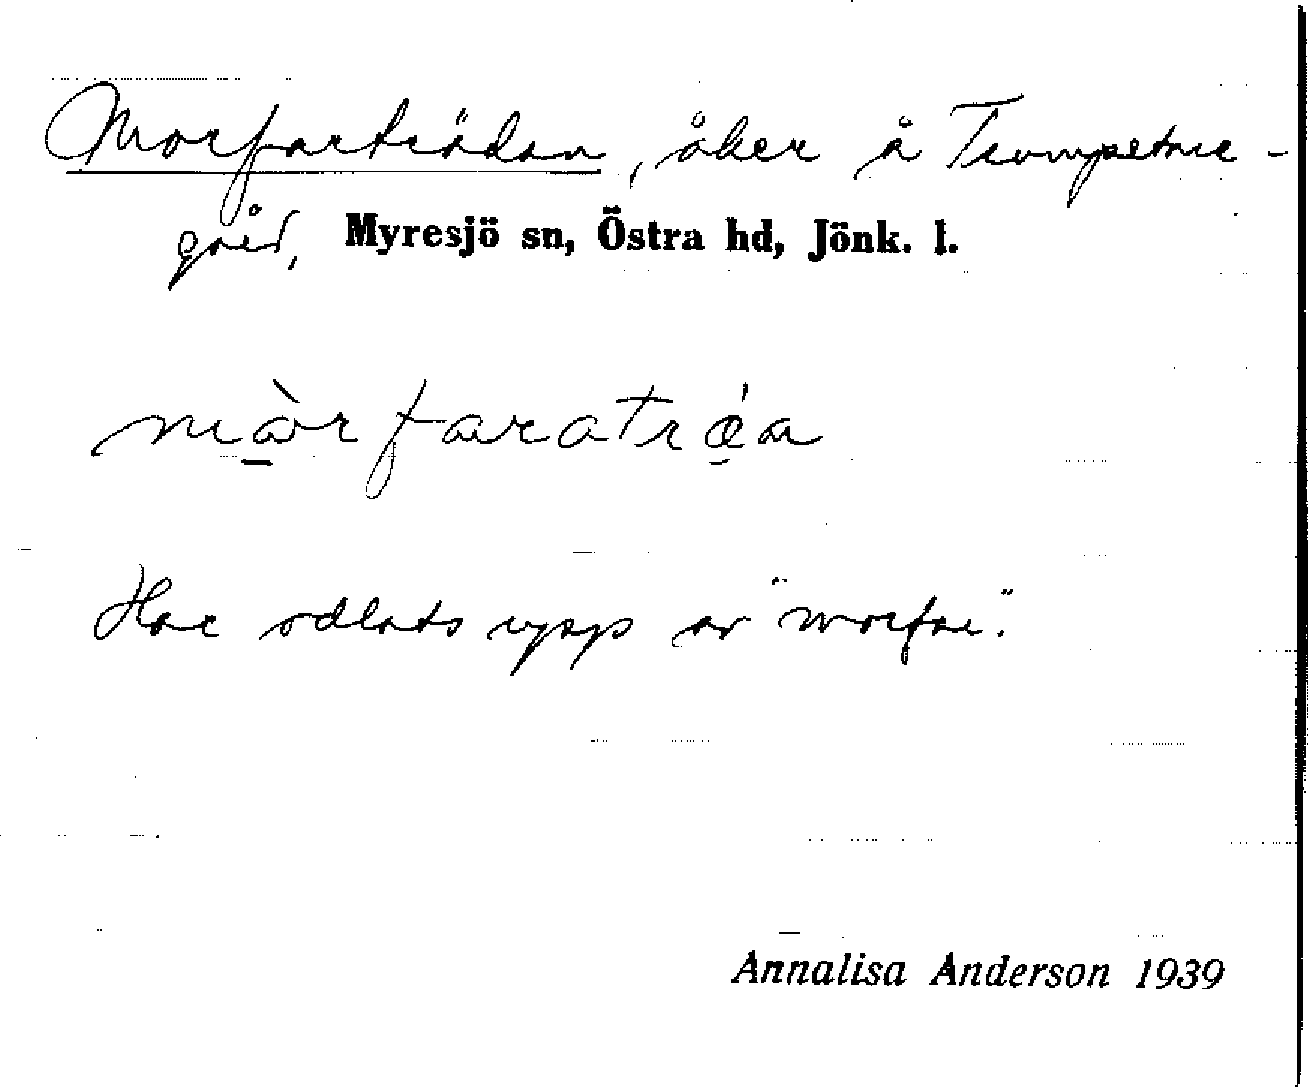 Morfarträdan, åker å Trumpetare-
gård, Myresjö sn, Östra hd, Jönk. l.
mòrfaratrǽa
Har odlats upp av "morfar".
Annalisa Anderson 1939